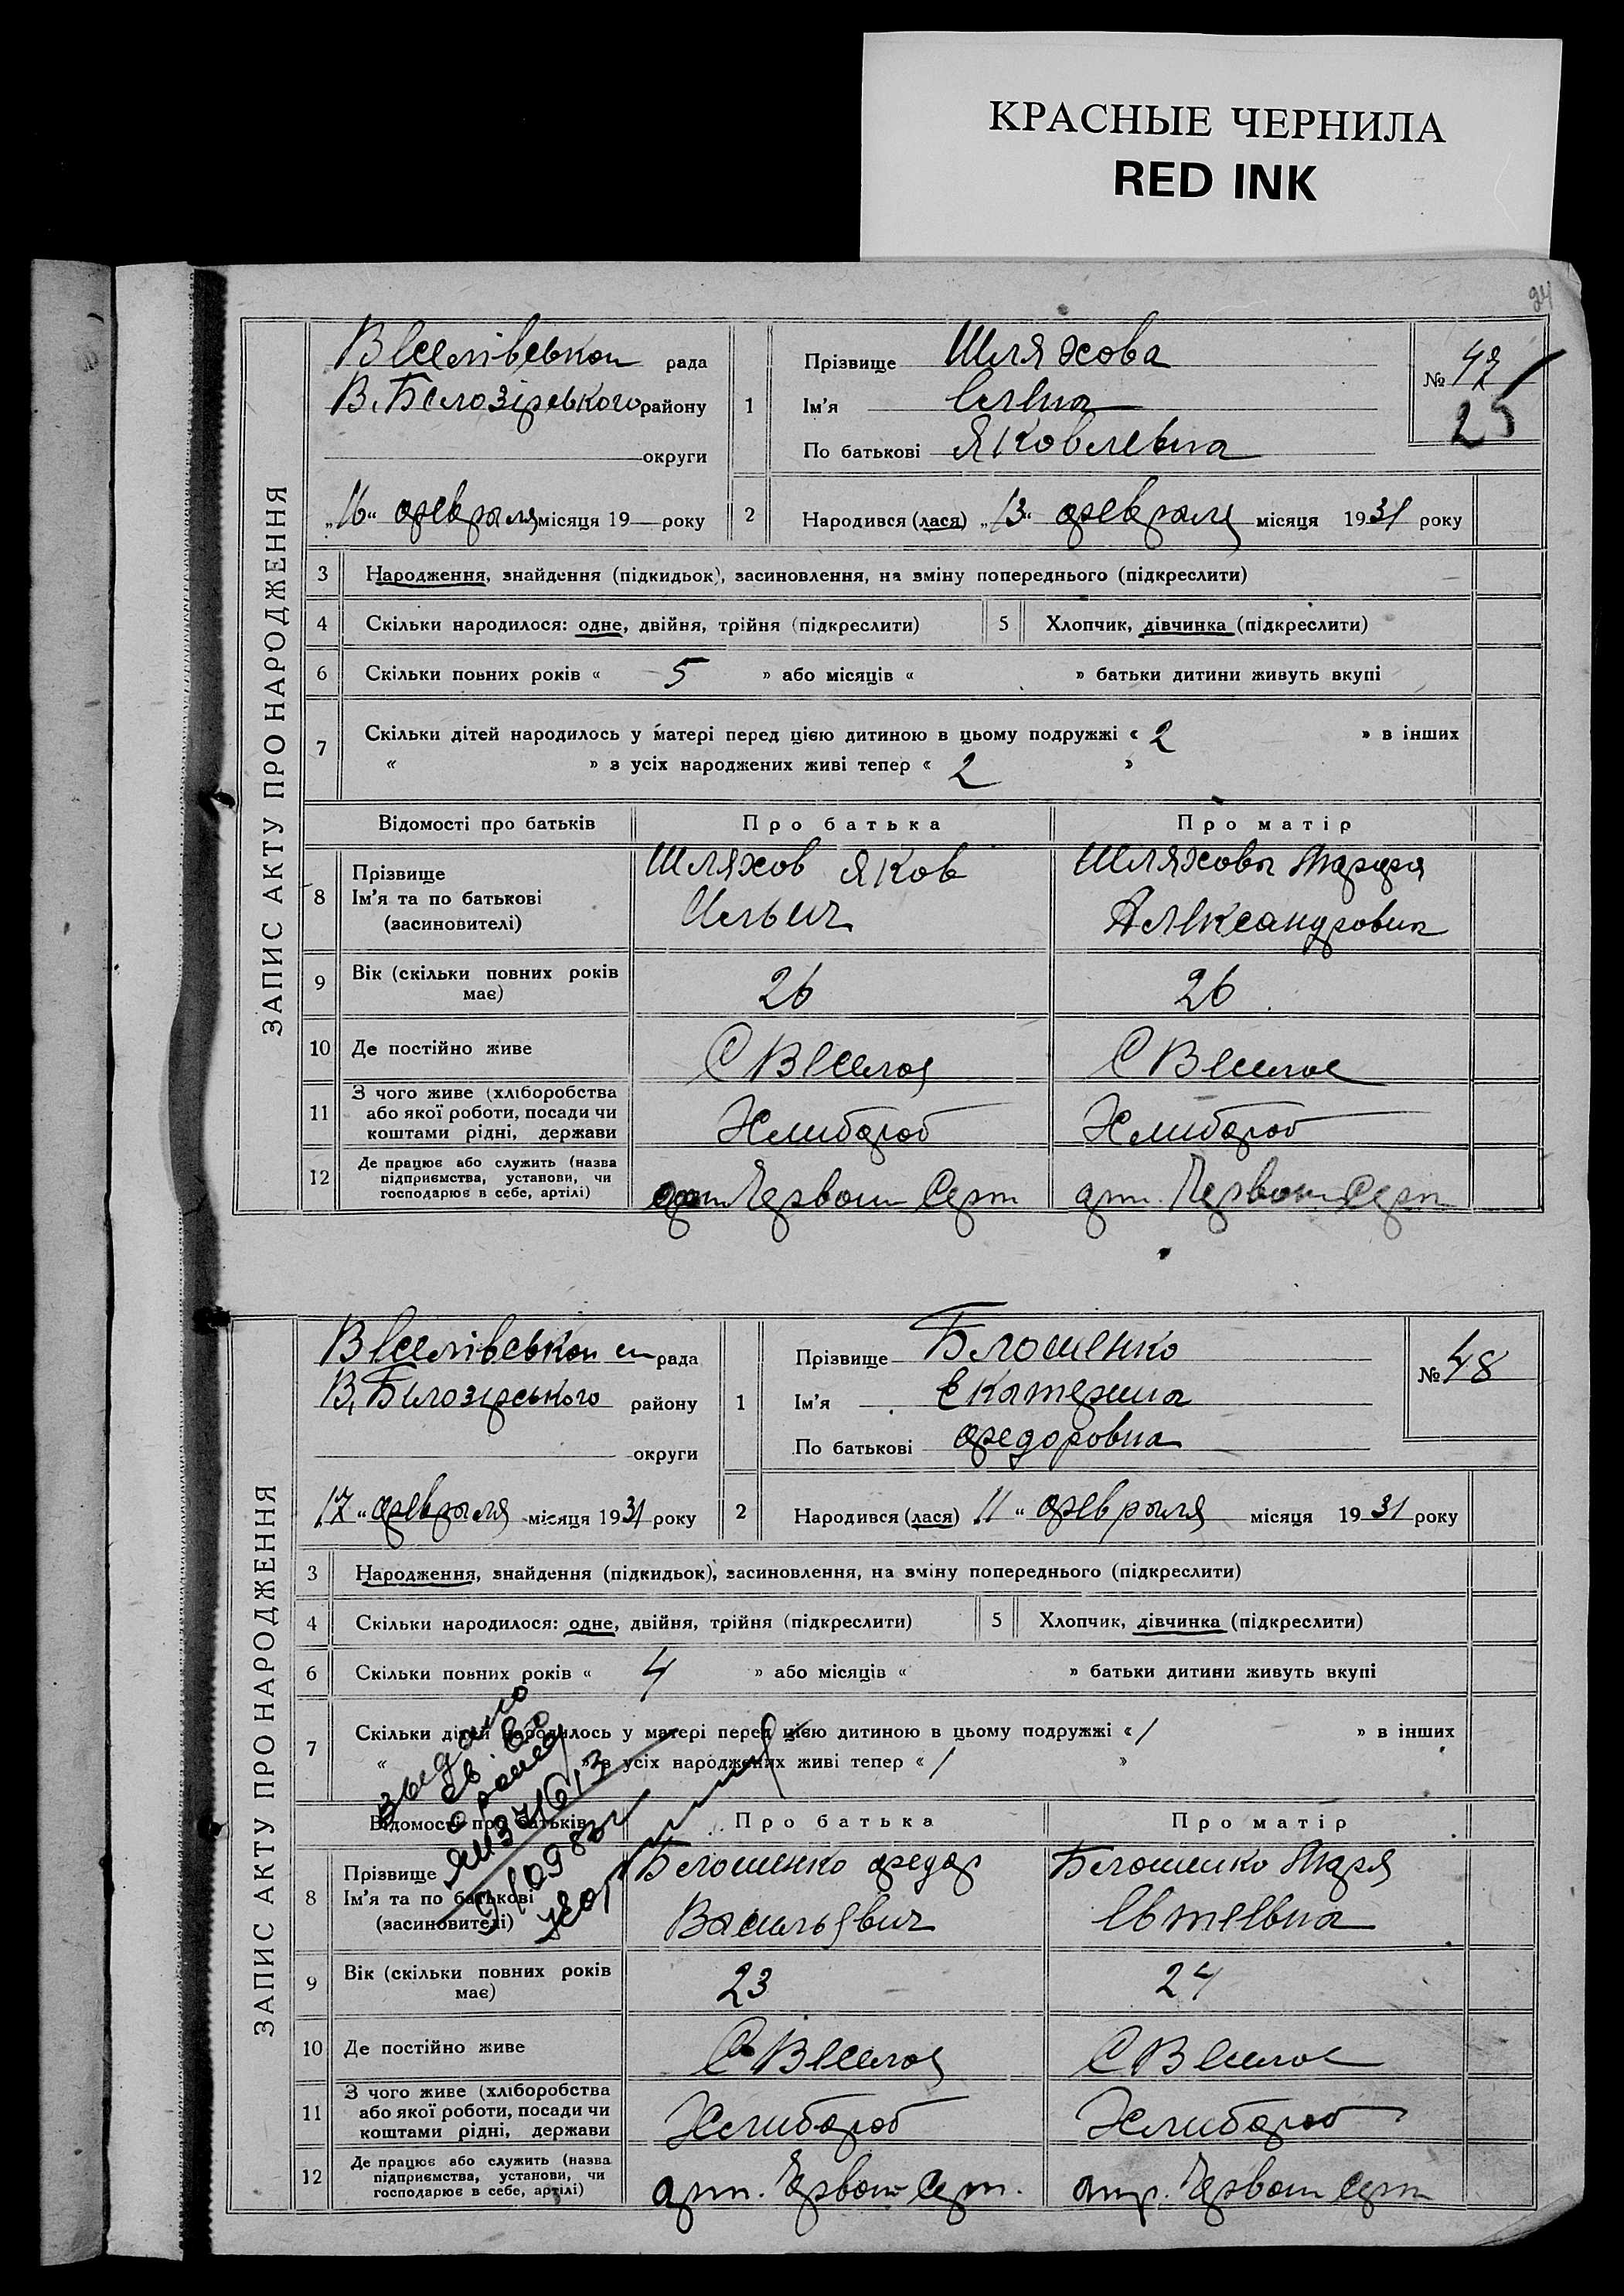 КРАСНЫЕ ЧЕРНИЛА
RED INK
24
ЗАПИС АКТУ ПРО НАРОДЖЕННЯ
Веселівськои рада
В. Белозірського району
округи
„16“ февраля місяця 19 — року
1
Прізвище Шляхова
Ім'я Елена
По батькові Яковлевна
№ 47
25
2 Народився (лася) „13“ февраля місяця 1931 року
3 Народження, знайдення (підкидьок), засиновлення, на зміну попереднього (підкреслити)
4 Скільки народилося: одне, двійня, трійня (підкреслити) 5 Хлопчик, дівчинка (підкреслити)
6 Скільки повних років « 5 » або місяців « » батьки дитини живуть вкупі
7 Скільки дітей народилось у матері перед цією дитиною в цьому подружжі « 2 » в інших
« » з усіх народжених живі тепер « 2 »
Відомості про батьків Про батька Про матір
8 Прізвище
Ім'я та по батькові
(засиновителі)
Шляхов Яков
Ильич
Шляхова Мария
Александровна
9 Вік (скільки повних років
має)
26 26
10 Де постійно живе С Веселоя С Веселое
11 З чого живе (хліборобства
або якої роботи, посади чи
коштами рідні, держави
Хлибороб Хлибороб
12 Де працює або служить (назва
підприємства, установи, чи
господарює в себе, артілі)
арт. Червон Серп арт. Червон Серп
ЗАПИС АКТУ ПРО НАРОДЖЕННЯ
Веселівськои рада
В. Билозірського району
округи
17“ февраля місяця 1931 року
1
Прізвище Білошенко
Ім'я Екатерина
По батькові Федоровна
№ 48
2 Народився (лася) 11 “ февраля місяця 1931 року
3 Народження, знайдення (підкидьок), засиновлення, на зміну попереднього (підкреслити)
4 Скільки народилося: одне, двійня, трійня (підкреслити) 5 Хлопчик, дівчинка (підкреслити)
6 Скільки повних років « 4 » або місяців « » батьки дитини живуть вкупі
7 Скільки дітей народилось у матері перед цією дитиною в цьому подружжі « 1 » в інших
« » з усіх народжених живі тепер « 1 »
выдано
св. во
о рожд
Відомості про батьків Про батька Про матір
8 Прізвище
Ім'я та по батькові
(засиновителі)
Белошенко Федор
Васильевич
Белошенко Мария
9 Вік (скільки повних років
має)
23 24
10 Де постійно живе С Веселоя С Веселое
11 З чого живе (хліборобства
або якої роботи, посади чи
коштами рідні, держави
Хлибороб Хлибороб
12 Де працює або служить (назва
підприємства, установи, чи
господарює в себе, артілі)
арт. Червон Серп. апр. Червон Серп